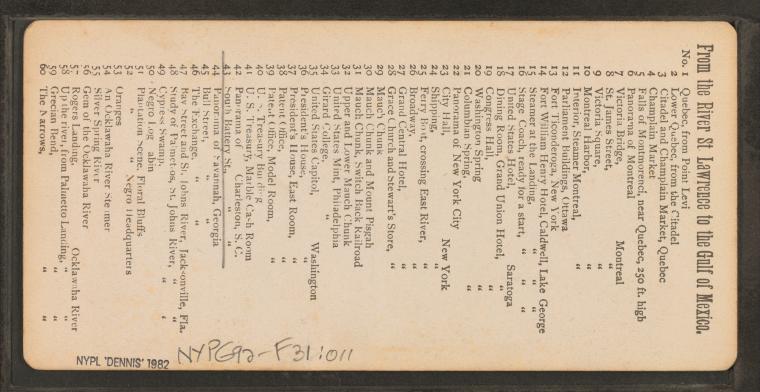 From the River St Lawrence to the Gulf of Mexico.
No. 1 Quebec, from Point Levi
2 Lower Quebec, from the Citadel
3 Citadel and Champlain Market, Quebec
4 Champlain Market
5 Falls of Montmorenci, near Quebec, 250 ft. high
6 Panorama of Montreal
7 Victoria Bridge, Montreal
8 St. James Street, "
9 Victoria Square, "
10 Montreal Harbor, "
11 Interior, Steamer Montreal, "
12 Parliament Buildings, Ottawa
13 Fort Ticonderoga, New York
14 Fort William Henry Hotel, Caldwell, Lake George
15 Steamer at the Landing, " "
16 Stage Coach, ready for a start, " "
17 United States Hotel, Saratoga
18 Dining Room, Grand Union Hotel, "
19 Congress Hall, "
20 Washington Spring "
21 Columbian Spring, "
22 Panorama of New York City
23 City Hall, New York
24 Shipping, "
25 Ferry Boat, crossing East River, "
26 Broadway, "
27 Grand Central Hotel, "
28 Grace Church and Stewart's Store, "
29 Mauch Chunk
30 Mauch Chunk and Mount Pisgah
31 Mauch Chunk, Switch Back Railroad
32 Upper and Lower Mauch Chunk
33 United States Mint, Philadelphia
34 Girard College, "
35 United States Capitol, Washington
36 President's House, "
37 President's House, East Room, "
38 Patent Office, "
39 Patent Office, Model Room, "
40 U. S. Treasury Building "
41 U. S. Treasury, Marble Cash Room
42 Panorama of Charleston, S. C.
43 South Battery St., " "
44 Panorama of Savannah, Georgia
45 Bull Street, " "
46 The Exchange, " "
47 Bay Street and St. Johns River, Jacksonville, Fla.
48 Study of Palmettos, St. Johns River, "
49 Cypress Swamp, " "
50 Negro Log Cabin
51 Plantation Scene, Floral Bluffs
52 " " Negro Headquarters
53 Oranges
54 An Ocklawaha River Steamer
55 Silver Spring River
56 Gem of the Ocklawaha River
57 Rogers Landing, Ocklawaha River
58 Up the river, from Palmetto Landing, " "
59 Grecian Bend, " "
60 The Narrows, " "
NYPL 'DENNIS' 1982
NYPG92-F31:011